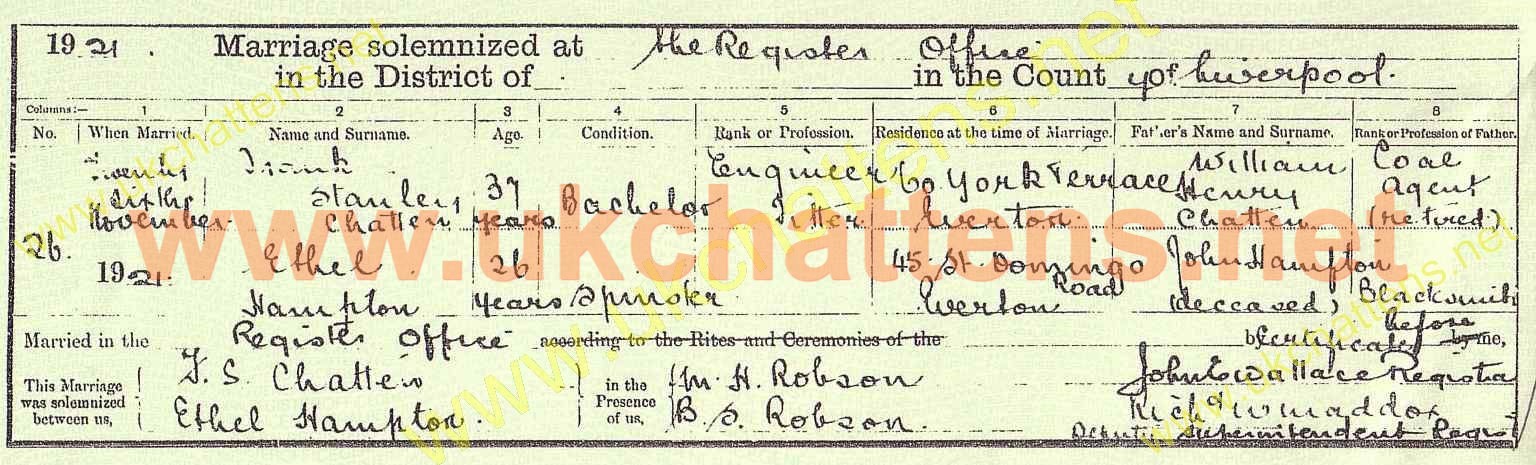 1921. Marriage solemnized at the Register Office
in the District of in the County of Liverpool.
Columns:— 1 2 3 4 5 6 7 8
No. When Married. Name and Surname. Age. Condition. Rank or Profession. Residence at the time of Marriage. Father's Name and Surname. Rank or Profession of Father.
26. Twenty Sixth November 1921. Frank Stanley Chatten 37 years Bachelor Engineer Fitter York Terrace Everton William Henry Chatten Coal Agent (retired)
Ethel Hampton 26 years Spinster 45 St. Domingo Road Everton John Hampton (deceased) Blacksmith
Married in the Register Office according to the Rites and Ceremonies of the by Certificate before by me,
This Marriage was solemnized between us, F. S. Chatten Ethel Hampton in the Presence of us, M. H. Robson B. S. Robson
John E Wallace Registrar
Richd W Maddox
Deputy Superintendent Regist
www.ukchattens.net
www.ukchattens.net
www.ukchattens.net
www.ukchattens.net
www.ukchattens.net